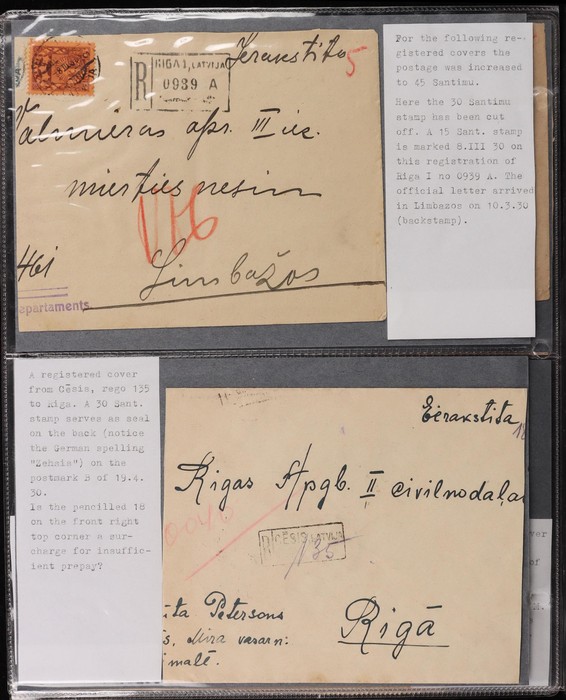 Ierakstito
5
RIGA 1, LATVIJA
R 0939 A
Valmieras apr. III iec.
miertiesnesim
461
Limbažos
epartaments
For the following re-
gistered covers the
postage was increased
to 45 Santimu.
Here the 30 Santimu
stamp has been cut
off. A 15 Sant. stamp
is marked 8.III 30 on
this registration of
Riga I no 0939 A. The
official letter arrived
in Limbazos on 10.3.30
(backstamp).
A registered cover
from Cēsis, rego 135
to Riga. A 30 Sant.
stamp serves as seal
on the back (notice
the German spelling
"Zehsis") on the
postmark B of 19.4.
30.
Is the pencilled 18
on the front right
top corner a sur-
charge for insuffic-
ient prepay?
Eerakstita
18
Rigas Apgb. II civilnodaļai
R CĒSIS, LATVIJA
135
ita Petersons
s, Mira vasarn:
imalē.
Rigā
ver
of